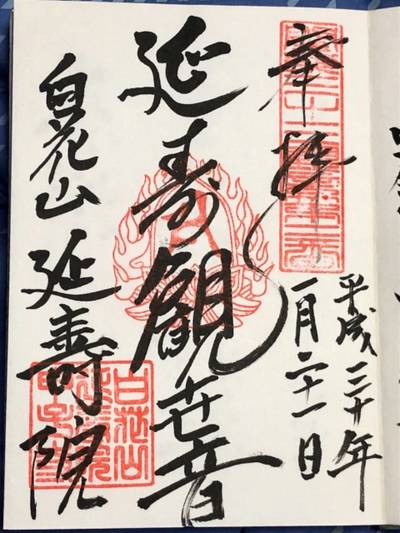 奉拝
平成三十年
一月二十一日
延寿觀世音
白花山 延壽院
白花山